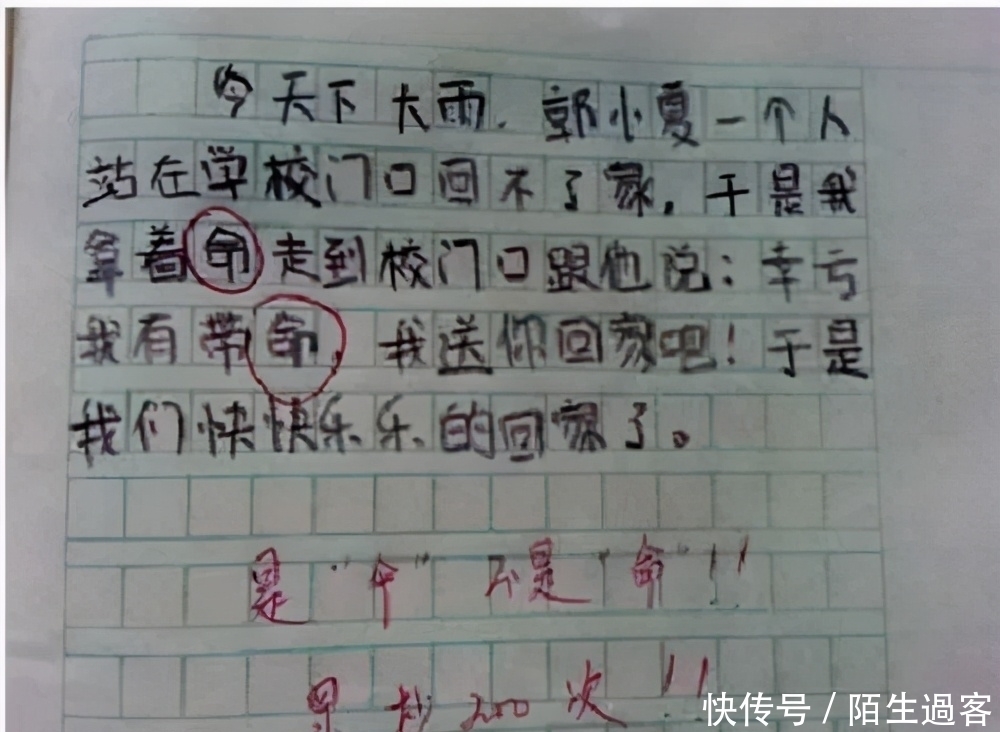 今天下大雨，郭小夏一个人
站在学校门口回不了家，于是我
拿着命走到校门口跟他说：幸亏
我有带命，我送你回家吧！于是
我们快快乐乐的回家了。
是"伞"不是"命"！！
罚抄200次！！
快传号/陌生過客